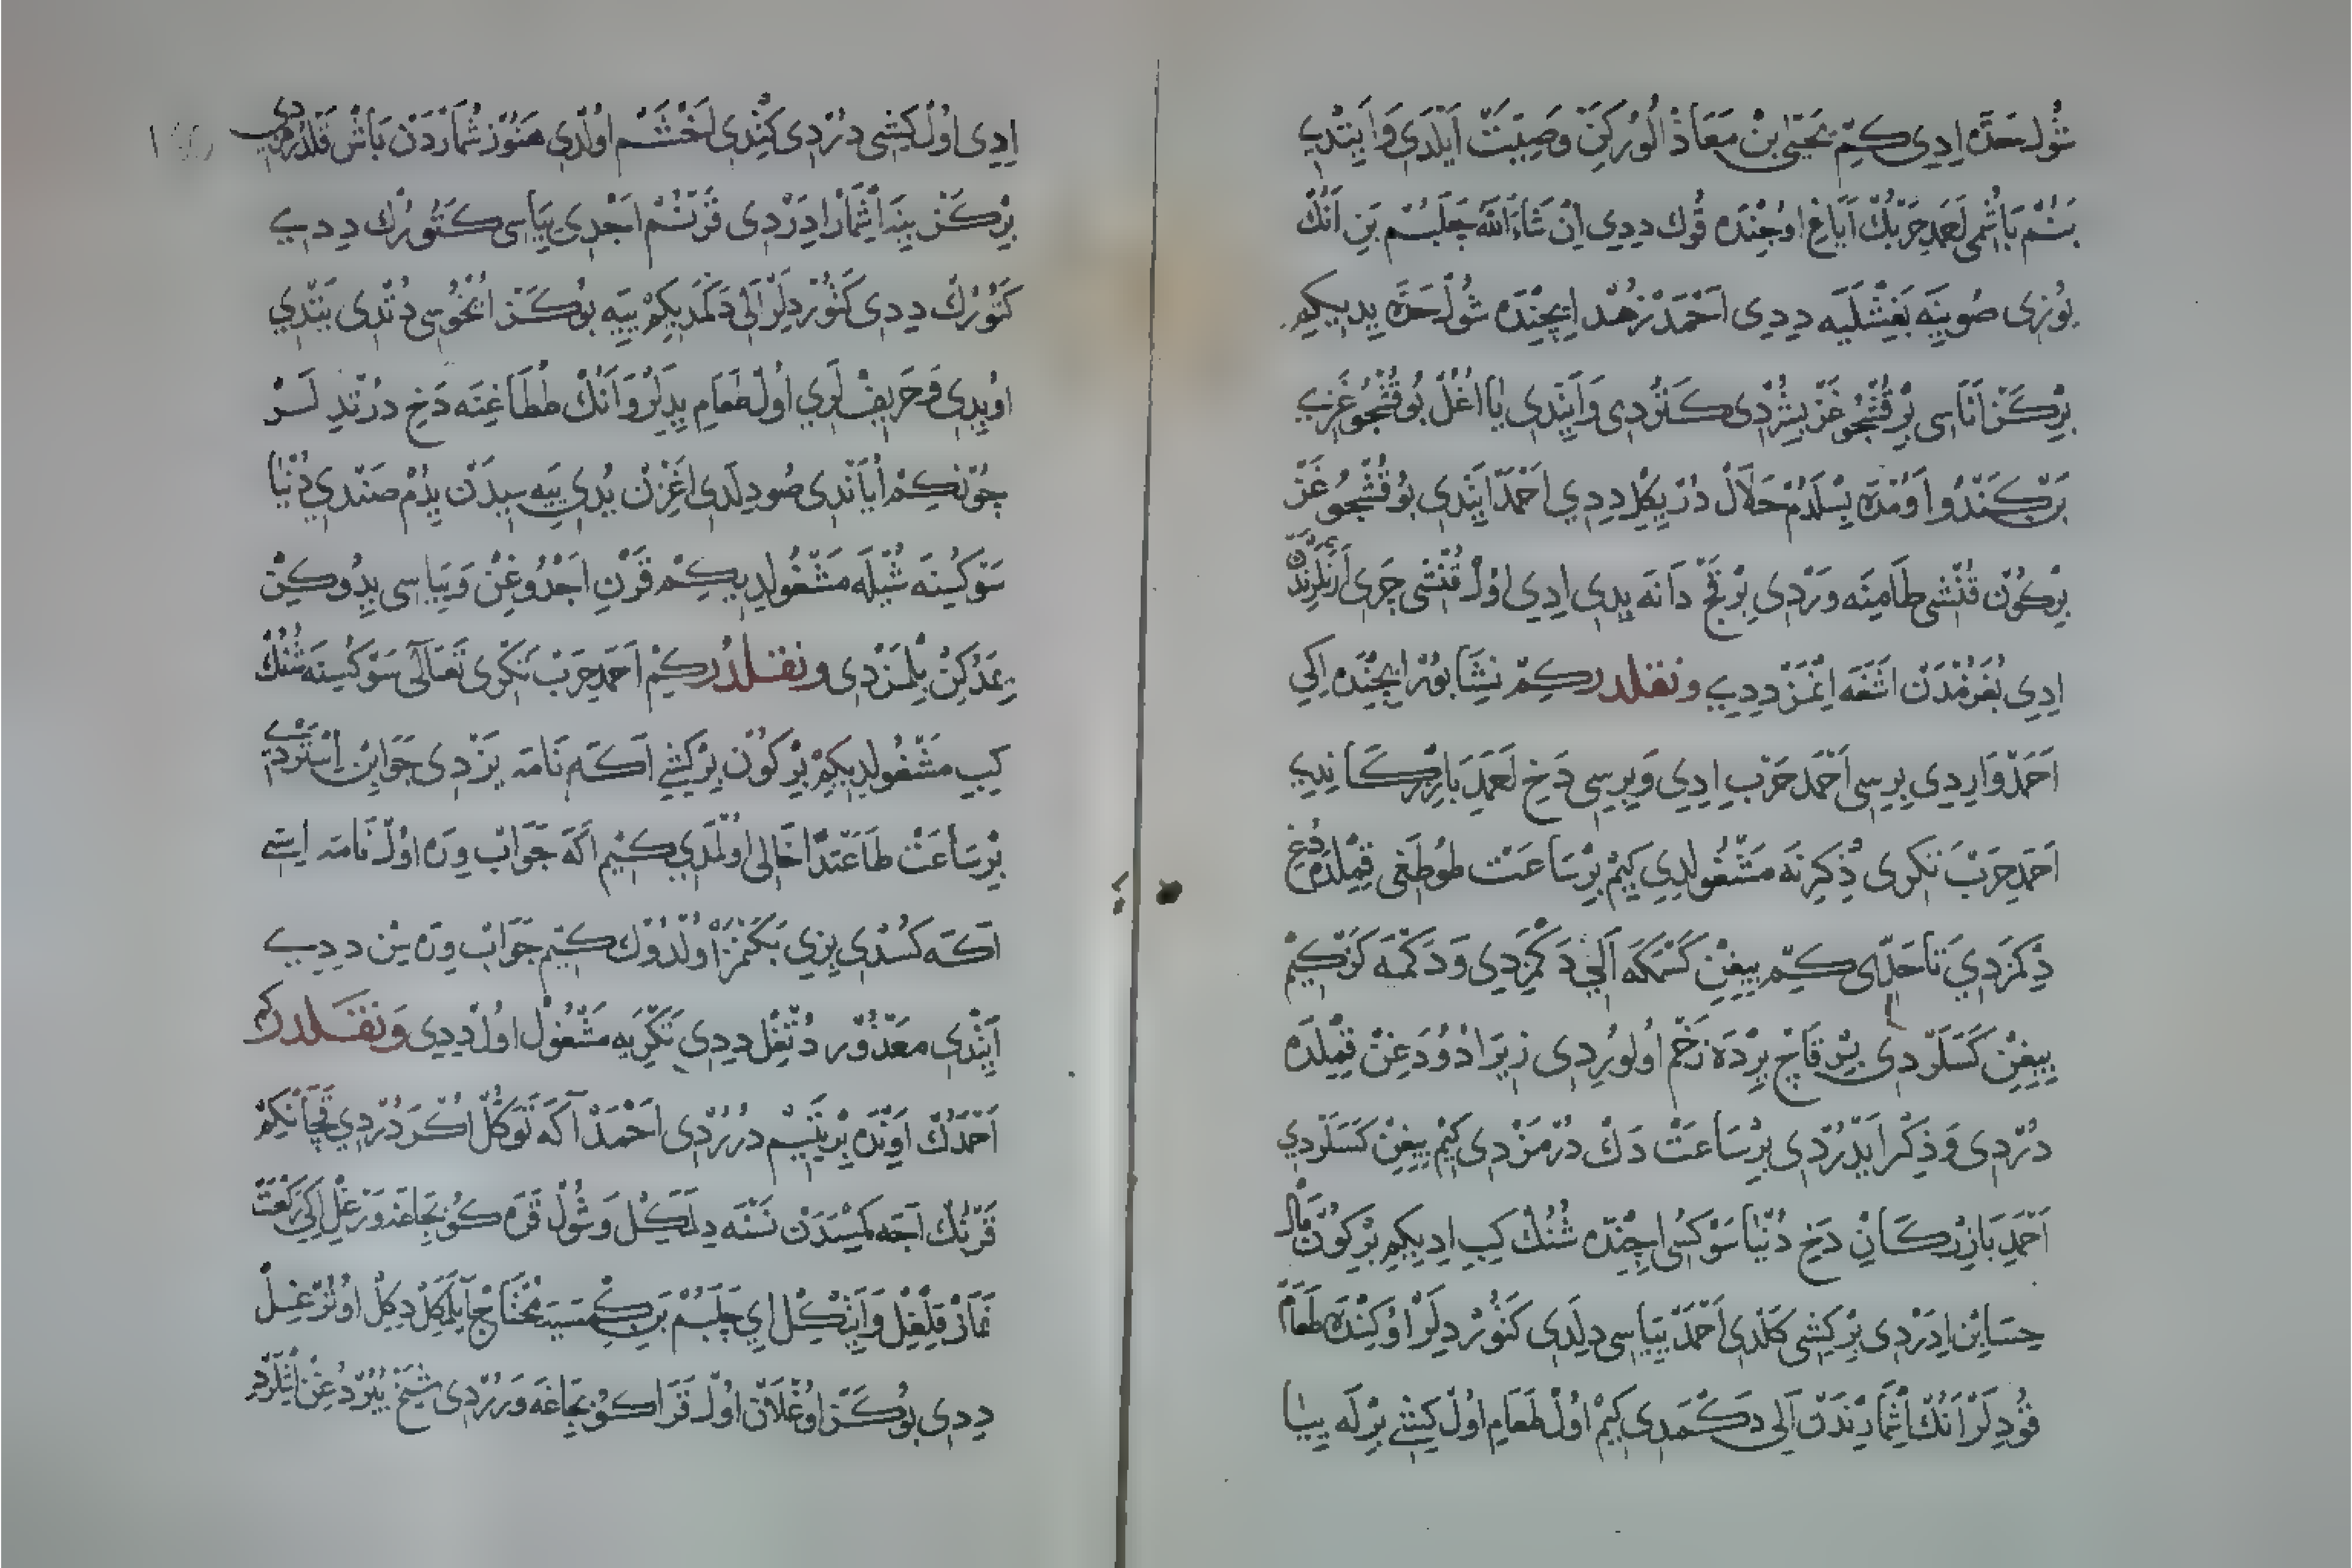 شُولْ حَدَّه اِدِی كِمْ یَحْیَی اِبْنِ مَعَاذْ اُلُورْكَنْ وَصِیَّتْ اَیْلَدِی وَاَیِتْدِی
بَنُمْ بَاشُمِی اَحْمَدِ حَرْبُكْ اَیَاغِ اُوجِنْدَه قُوكْ دِدِی اِنْ شَاءَ اللّٰه چَلَبُمْ بَنِ اَنُكْ
یُوزِی صُوِیَنَه بَغِشْلَیَه دِدِی اَحْمَدْ زُهْد اِیچِنْدَه شُولْ حَدَّه یِدِییكِمْ
بِرْكَزْ اَنَاسِی بِرْ قُشْجُوغَزْ بِشُرْدِی كَتُرْدِی وَاَیِتْدِی یَا اُغُلْ بُو قُشْجُوغَزِی
بَنْ كَنْدُو اَوُمْدَه بِسْلَدُمْ حَلَالْ دُرْ یِكِلْ دِدِی اَحْمَدْ اَیِتْدِی بُو قُشْجُوغَزْ
بِرْ كُونْ قُنْشِی طَامِنَه وَرْدِی بِرْ قَچْ دَانَه یِدِی اِدِی اُولْ قُنْشِی چَرِی اَرَنْلَرِنْدَنْ
اِدِی بُغَزُمْدَنْ اَشَغَه اِنْمَزْ دِدِی وَنَقْلدُرْ كِمْ نِشَابُورْ اِیچِنْدَه اِكِی
اَحْمَدْ وَارِدِی بِرِسِی اَحْمَد حَرْبِ اِدِی وَبِرِسِی دَخِ اَحْمَدِ بَازِرْكَانِیدِی
اَحْمَدِ حَرْبْ تَنْكرِی ذِكْرِنَه مَشْغُولِدِی كِیمْ بِرْ سَاعَتْ طُوطَغِی قِمِلْدَه دُغِی
دِكْمَزْدِی تَا حَدِّی كِیمْ بِیِغِنْ كَسْمَكَه اَلِی دَكْمَزْدِی وَدَكْمَه كَزْ كِیمْ
بِیِغِنْ كَسَلَرْدِی بِرْ قَاچْ یِرْدَه زَخْم اُولُورِدِی زِیرَا دُودَغِنْ قِمِلْدَه
دُرْدِی وَذِكْر اَیْدُرْدِی بِرْ سَاعَتْ دَكْ دُرْمَزْدِی كِیمْ بِیِغِنْ كَسَلَرْدِی
اَحْمَدِ بَازِرْكَانْ دَخِ دُنْیَا سَوْكُسِی اِچِنْدَه شُنُكْ كِبِ اِدِیكِمْ بِرْكُونْ مَالْ
حِسَابِنْ اِدَرْدِی بِرْ كِشِی كَلْدِی اَحْمَدْ یِیَاسِی دِلَدِی كَتُورْدِلَرْ اُوكِنْدَه طَعَامْ
قُودِلَرْ اَنُكْ شُمَارِنْدَنْ اَلِی دَكْمَدِی كِیمْ اُولْ طَعَامِ اُولْ كِشِی بِرْلَه یِیَا
اِدِی اُولْ كِشِی دُرْدِی كِتْدِی اَخْشَم اُولْدِی هَنُوزْ شُمَارْدَنْ بَاشْ قَلْدُرْمَدِی
بِرْ كَزْ یِنَه شُمَار اِدَرْدِی قَرْنُمْ اَجْدِی یِیَاسِی كَتُورُكْ دِدِی
كَتُورُكْ دِدِی كَتُورْدِلَرْ اَلِی دَكْمَدِیكِمْ یِیَه بُو كَزْ اُیْخُوسِی دُتْدِی یَتْدِی
اُویُدِی وَحَرِیفْلَرِی اُولْ طَعَامِ یِدِلَرْ وَاَنُكْ طُطَاغِنَه دَخِ دُرْتْدِیلَرْ
چُونْكِمْ اُیَانْدِی صُو دِلَدِی اَغْزِنْ یُدِی یِیَه سِیدَنْ یِدُمْ صَنْدِی دُنْیَا
سَوْكُسِینَه شُیْلَه مَشْغُولِدِی كِمْ قَرْنِ اَجْدُوغِنْ وَیِیَاسِی یِدُوكِنْ
یِمَدُكِنْ بِلْمَزْدِی وَنَقْلدُرْ كِیمْ اَحْمَدِ حَرْبْ تَنْكرِی تَعَالَی سَوْكُسِینَه شُنُكْ
كِبِ مَشْغُولِدِیكِمْ بِرْ كُونْ بِرْ كِشِی اَكَه نَامَه یَزْدِی جَوَابِنْ اِسْتَرْدِی
بِرْ سَاعَتْ طَاعَتْدَا خَالِی اُولْمَدِی كِیمْ اَكَه جَوَابْ وِرَه اُولْ نَامَه اِسِّی
اَكَه كُسْدِی بِزِی بَكْمَزْ اُولْدُوكْ كِیمْ جَوَابْ وِرَه سِنْ دِدِی
اَیِتْدِی مَعْذُورْ دُتْغِلْ دِدِی تَنْكرِیَه مَشْغُولْ اُولْ دِدِی وَنَقْلدُرْ كِمْ
اَحْمَدُكْ اَوِنْدَه بِرْ یَتِیم دُرُرْدِی اَحْمَدْ اَكَه تَوَكُّلْ اُكْرَدُرْدِی قَچَانْكِمْ
قَرْنُكْ اَجَه كِمْسَدَنْ نَسْنَه دِلَمَكِلْ وَشُولْ قَرَه كُوبَجَاغَه وَرْغِلْ اِكِی رَكْعَتْ
نَمَازْ قِلْغِلْ وَاَیِتْكِلْ اَی چَلَبُمْ بَنِ كِمْسَیَه مُحْتَاجْ اَیْلَمَكِلْ دِكِلْ اُوتُرْغِلْ
دِدِی بُو كَزْ اُوغْلَانْ اُولْ قَرَا كُوبَجَاغَه وَرُرْدِی شَیْخْ بُیُرْدُغِنْ اَیْلَرْدِ